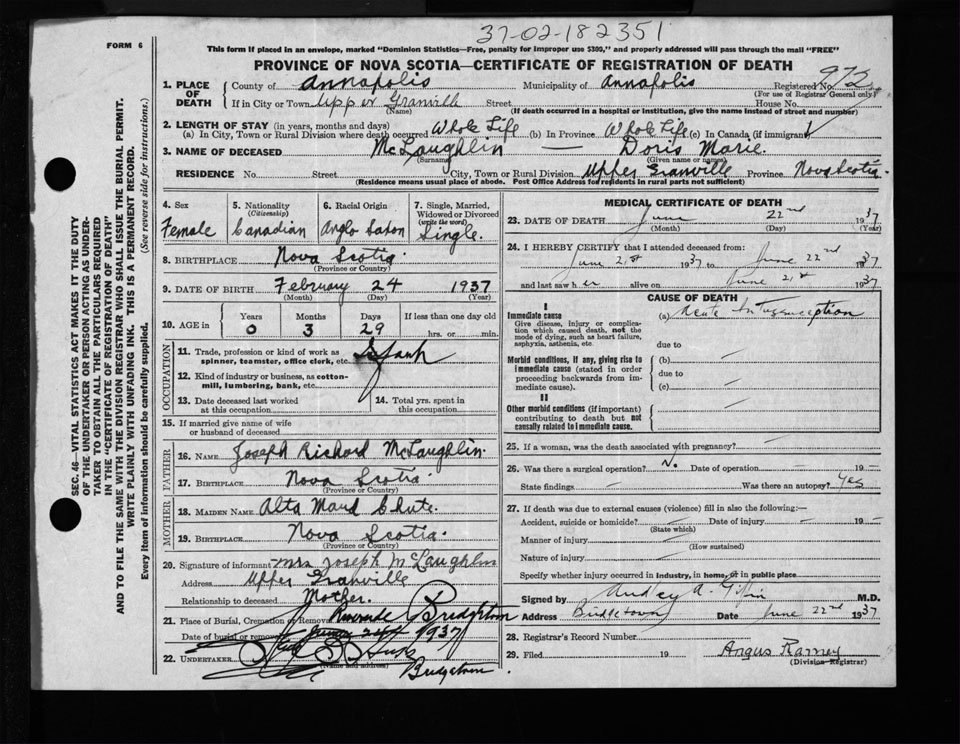 37-02-182351
FORM 6
This form if placed in an envelope, marked "Dominion Statistics—Free, penalty for improper use $300," and properly addressed will pass through the mail "FREE"
PROVINCE OF NOVA SCOTIA—CERTIFICATE OF REGISTRATION OF DEATH
1. PLACE OF DEATH County of Annapolis Municipality of Annapolis Registered No. 975
(For use of Registrar General only)
If in City or Town Upper Granville Street House No.
(Name) (If death occurred in a hospital or institution, give the name instead of street and number)
2. LENGTH OF STAY (in years, months and days)
(a) In City, Town or Rural Division where death occurred Whole Life (b) In Province Whole Life (c) In Canada (if immigrant)
3. NAME OF DECEASED McLaughlin — Doris Marie.
(Surname) (Given name or names)
RESIDENCE No. Street City, Town or Rural Division Upper Granville Province Nova Scotia.
(Residence means usual place of abode. Post Office Address for residents in rural parts not sufficient)
4. Sex Female
5. Nationality (Citizenship) Canadian
6. Racial Origin Anglo Saxon
7. Single, Married, Widowed or Divorced (write the word) Single.
8. BIRTHPLACE Nova Scotia.
(Province or Country)
9. DATE OF BIRTH February 24 1937
(Month) (Day) (Year)
10. AGE in Years Months Days If less than one day
0 3 29 hrs. or min.
OCCUPATION
11. Trade, profession or kind of work as spinner, teamster, office clerk, etc. Infant
12. Kind of industry or business, as cotton-mill, lumbering, bank, etc.
13. Date deceased last worked at this occupation
14. Total yrs. spent in this occupation
15. If married give name of wife or husband of deceased
FATHER
16. NAME Joseph Richard McLaughlin.
17. BIRTHPLACE Nova Scotia
(Province or Country)
MOTHER
18. MAIDEN NAME Alta Maud Chute.
19. BIRTHPLACE Nova Scotia.
(Province or Country)
20. Signature of informant Mrs Joseph McLaughlin
Address Upper Granville
Relationship to deceased Mother.
21. Place of Burial, Cremation or Removal Riverside Bridgetown
Date of burial or removal June 24th 1937
22. UNDERTAKER
(Name and address)
Bridgetown.
MEDICAL CERTIFICATE OF DEATH
23. DATE OF DEATH June 22nd 1937
(Month) (Day) (Year)
24. I HEREBY CERTIFY that I attended deceased from:
June 21st 1937 to June 22nd 1937
and last saw her alive on June 21st 1937
CAUSE OF DEATH
I
Immediate cause
Give disease, injury or complication which caused death, not the mode of dying, such as heart failure, asphyxia, asthenia, etc.
(a) Acute Intussusception
due to
Morbid conditions, if any, giving rise to immediate cause (stated in order proceeding backwards from immediate cause).
(b)
due to
(c)
II
Other morbid conditions (if important) contributing to death but not causally related to immediate cause.
25. If a woman, was the death associated with pregnancy?
26. Was there a surgical operation? No. Date of operation 19
State findings Was there an autopsy? Yes
27. If death was due to external causes (violence) fill in also the following:—
Accident, suicide or homicide? Date of injury 19
(State which)
Manner of injury
(How sustained)
Nature of injury
Specify whether injury occurred in industry, in home, or in public place
Signed by M.D.
Address Bridgetown Date June 22nd 1937
28. Registrar's Record Number
29. Filed 19 Angus Ramey
(Division Registrar)
SEC. 46—VITAL STATISTICS ACT MAKES IT THE DUTY
OF THE UNDERTAKER OR PERSON ACTING AS UNDER-
TAKER TO OBTAIN ALL THE PARTICULARS REQUIRED
IN THE "CERTIFICATE OF REGISTRATION OF DEATH"
AND TO FILE THE SAME WITH THE DIVISION REGISTRAR WHO SHALL ISSUE THE BURIAL PERMIT.
WRITE PLAINLY WITH UNFADING INK. THIS IS A PERMANENT RECORD.
Every item of information should be carefully supplied. (See reverse side for instructions.)